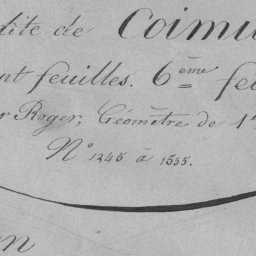 dite de Coimu
nt feuilles. 6ème fe
r Roger, Géomètre de 1
N° 1345 à 1555.